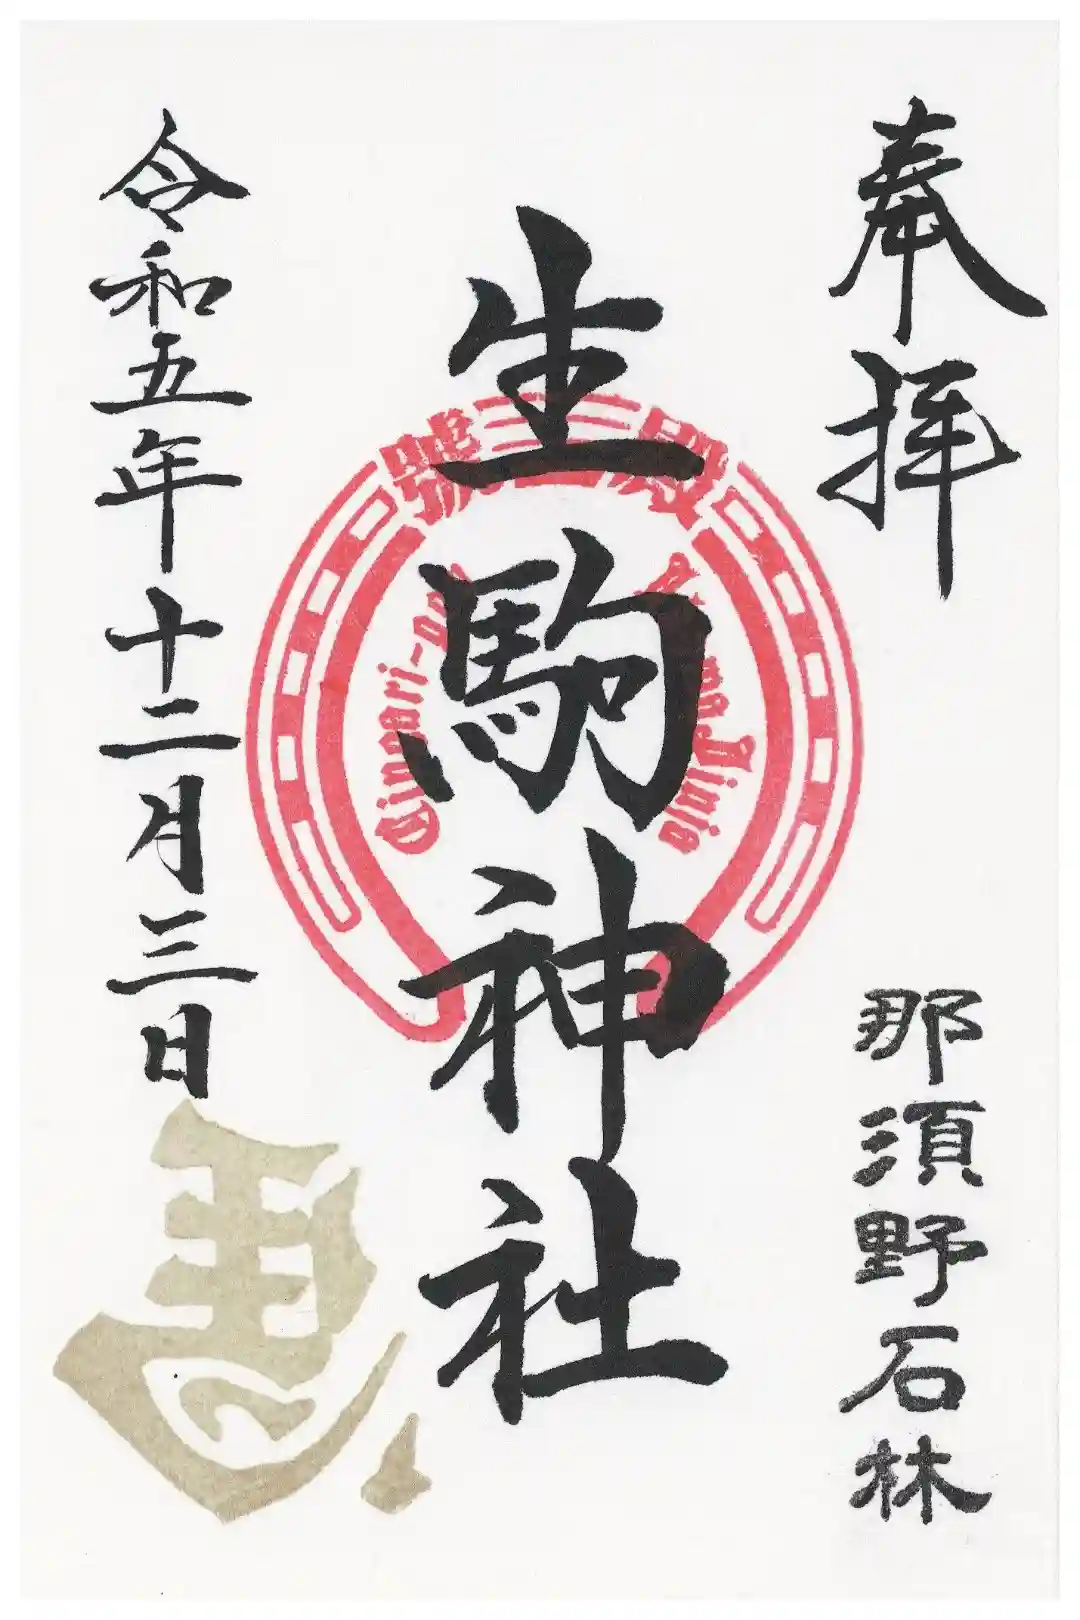 奉拝
那須野石林
生駒神社
號三殿
Jinja
令和五年十二月三日